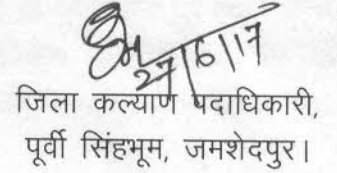 27/6/17
जिला कल्याण पदाधिकारी,
पूर्वी सिंहभूम, जमशेदपुर।